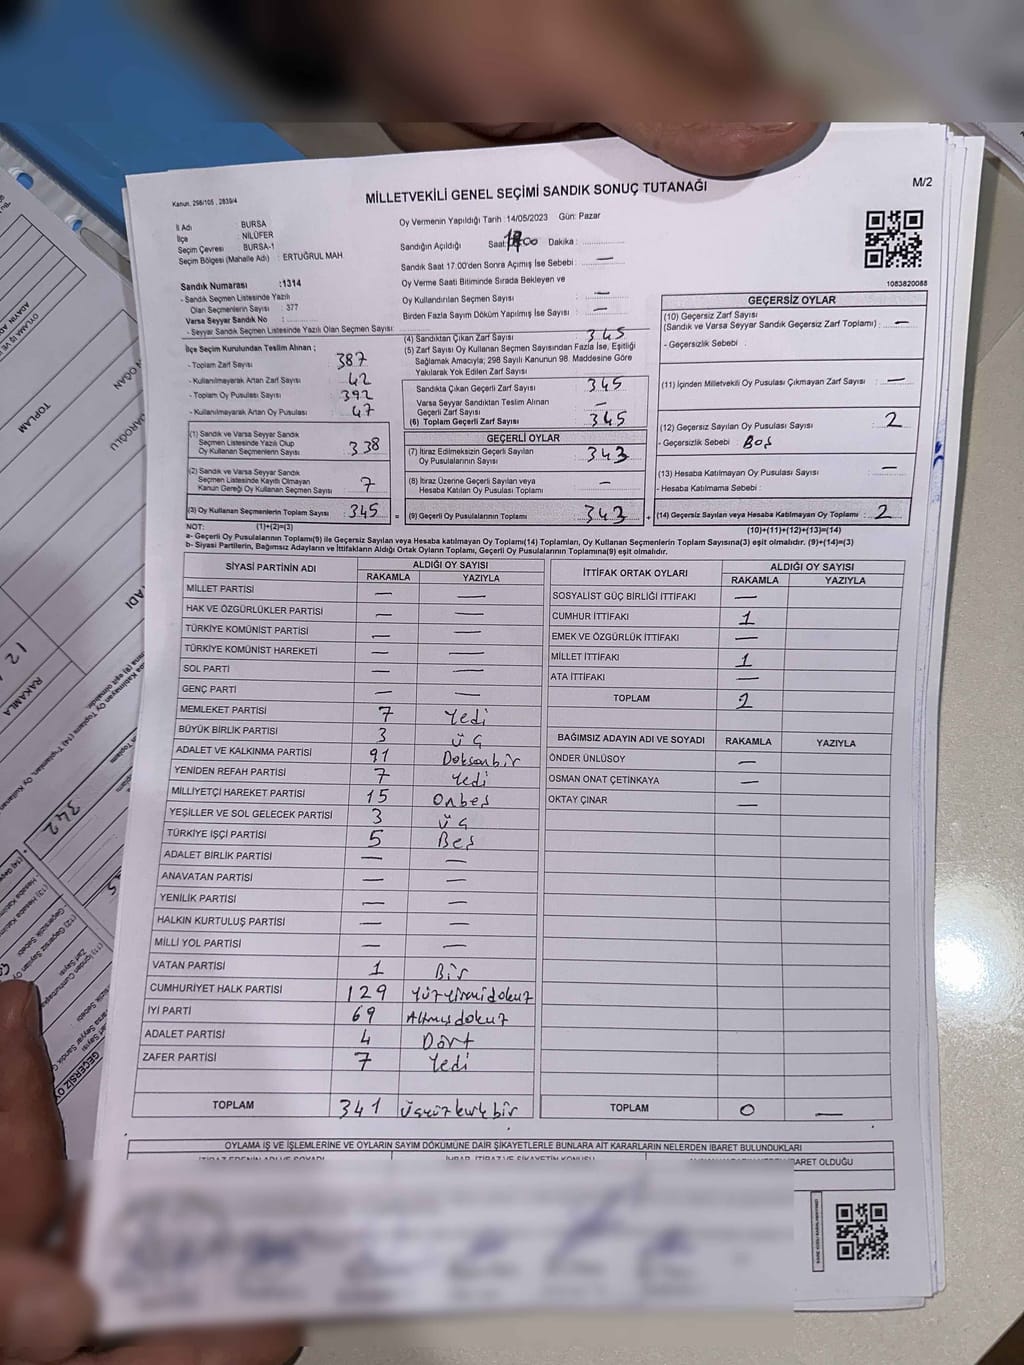 MİLLETVEKİLİ GENEL SEÇİMİ SANDIK SONUÇ TUTANAĞI
M/2
Kanun, 298/105 , 2839/4
İl Adı BURSA
İlçe NİLÜFER
Seçim Çevresi BURSA-1
Seçim Bölgesi (Mahalle Adı) : ERTUĞRUL MAH
Sandık Numarası :1314
- Sandık Seçmen Listesinde Yazılı
Olan Seçmenlerin Sayısı : 377
Varsa Seyyar Sandık No :
- Seyyar Sandık Seçmen Listesinde Yazılı Olan Seçmen Sayısı :
Oy Vermenin Yapıldığı Tarih :14/05/2023 Gün: Pazar
Sandığın Açıldığı Saat: 00 Dakika :
Sandık Saat 17.00'den Sonra Açımış İse Sebebi : —
Oy Verme Saati Bitiminde Sırada Bekleyen ve
Oy Kullandırılan Seçmen Sayısı : —
Birden Fazla Sayım Döküm Yapılmış İse Sayısı : —
1083820088
İlçe Seçim Kurulundan Teslim Alınan ;
- Toplam Zarf Sayısı : 387
- Kullanılmayarak Artan Zarf Sayısı : 42
- Toplam Oy Pusulası Sayısı : 392
- Kullanılmayarak Artan Oy Pusulası : 47
(1) Sandık ve Varsa Seyyar Sandık
Seçmen Listesinde Yazılı Olup
Oy Kullanan Seçmenlerin Sayısı : 338
(2) Sandık ve Varsa Seyyar Sandık
Seçmen Listesinde Kayıtlı Olmayan
Kanun Gereği Oy Kullanan Seçmen Sayısı : 7
(3) Oy Kullanan Seçmenlerin Toplam Sayısı : 345
(4) Sandıktan Çıkan Zarf Sayısı : 345
(5) Zarf Sayısı Oy Kullanan Seçmen Sayısından Fazla İse, Eşitliği
Sağlamak Amacıyla; 298 Sayılı Kanunun 98. Maddesine Göre
Yakılarak Yok Edilen Zarf Sayısı
Sandıkta Çıkan Geçerli Zarf Sayısı : 345
Varsa Seyyar Sandıktan Teslim Alınan
Geçerli Zarf Sayısı : —
(6) Toplam Geçerli Zarf Sayısı : 345
GEÇERLİ OYLAR
(7) İtiraz Edilmeksizin Geçerli Sayılan
Oy Pusulalarının Sayısı : 343
(8) İtiraz Üzerine Geçerli Sayılan veya
Hesaba Katılan Oy Pusulası Toplamı : —
(9) Geçerli Oy Pusulalarının Toplamı : 343
GEÇERSİZ OYLAR
(10) Geçersiz Zarf Sayısı
(Sandık ve Varsa Seyyar Sandık Geçersiz Zarf Toplamı) : —
- Geçersizlik Sebebi :
(11) İçinden Milletvekili Oy Pusulası Çıkmayan Zarf Sayısı : —
(12) Geçersiz Sayılan Oy Pusulası Sayısı : 2
- Geçersizlik Sebebi : Boş
(13) Hesaba Katılmayan Oy Pusulası Sayısı : —
- Hesaba Katılmama Sebebi :
(14) Geçersiz Sayılan veya Hesaba Katılmayan Oy Toplamı : 2
NOT: (1)+(2)=(3)
(10)+(11)+(12)+(13)=(14)
a- Geçerli Oy Pusulalarının Toplamı(9) ile Geçersiz Sayılan veya Hesaba katılmayan Oy Toplamı(14) Toplamları, Oy Kullanan Seçmenlerin Toplam Sayısına(3) eşit olmalıdır. (9)+(14)=(3)
b- Siyasi Partilerin, Bağımsız Adayların ve İttifakların Aldığı Ortak Oyların Toplamı, Geçerli Oy Pusulalarının Toplamına(9) eşit olmalıdır.
SİYASİ PARTİNİN ADI ALDIĞI OY SAYISI
RAKAMLA YAZIYLA
MİLLET PARTİSİ — —
HAK VE ÖZGÜRLÜKLER PARTİSİ — —
TÜRKİYE KOMÜNİST PARTİSİ — —
TÜRKİYE KOMÜNİST HAREKETİ — —
SOL PARTİ — —
GENÇ PARTİ — —
MEMLEKET PARTİSİ 7 Yedi
BÜYÜK BİRLİK PARTİSİ 3 Üç
ADALET VE KALKINMA PARTİSİ 91 Doksanbir
YENİDEN REFAH PARTİSİ 7 Yedi
MİLLİYETÇİ HAREKET PARTİSİ 15 Onbeş
YEŞİLLER VE SOL GELECEK PARTİSİ 3 Üç
TÜRKİYE İŞÇİ PARTİSİ 5 Beş
ADALET BİRLİK PARTİSİ — —
ANAVATAN PARTİSİ — —
YENİLİK PARTİSİ — —
HALKIN KURTULUŞ PARTİSİ — —
MİLLİ YOL PARTİSİ — —
VATAN PARTİSİ 1 Bir
CUMHURİYET HALK PARTİSİ 129 Yüzyirmidokuz
İYİ PARTİ 69 Altmışdokuz
ADALET PARTİSİ 4 Dört
ZAFER PARTİSİ 7 Yedi
TOPLAM 341 Üçyüzkırkbir
İTTİFAK ORTAK OYLARI ALDIĞI OY SAYISI
RAKAMLA YAZIYLA
SOSYALİST GÜÇ BİRLİĞİ İTTİFAKI —
CUMHUR İTTİFAKI 1
EMEK VE ÖZGÜRLÜK İTTİFAKI —
MİLLET İTTİFAKI 1
ATA İTTİFAKI —
TOPLAM 2
BAĞIMSIZ ADAYIN ADI VE SOYADI RAKAMLA YAZIYLA
ÖNDER ÜNLÜSOY —
OSMAN ONAT ÇETİNKAYA —
OKTAY ÇINAR —
TOPLAM 0 —
OYLAMA İŞ VE İŞLEMLERİNE VE OYLARIN SAYIM DÖKÜMÜNE DAİR ŞİKAYETLERLE BUNLARA AİT KARARLARIN NELERDEN İBARET BULUNDUKLARI
İTİRAZ EDENİN ADI VE SOYADI İHBAR, İTİRAZ VE ŞİKAYETİN KONUSU BARET OLDUĞU
TOPLAM
RAKAMLA
342